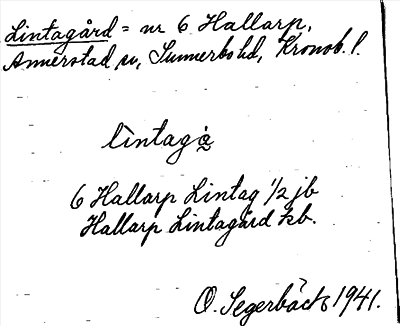 Lintagård = nr 6 Hallarp,
Annerstad sn, Sunnerbo hd, Kronob. l.
lintagå
6 Hallarp Lintag 1/2 jb
Hallarp Lintagård kb.
O. Segerbäck 1941.